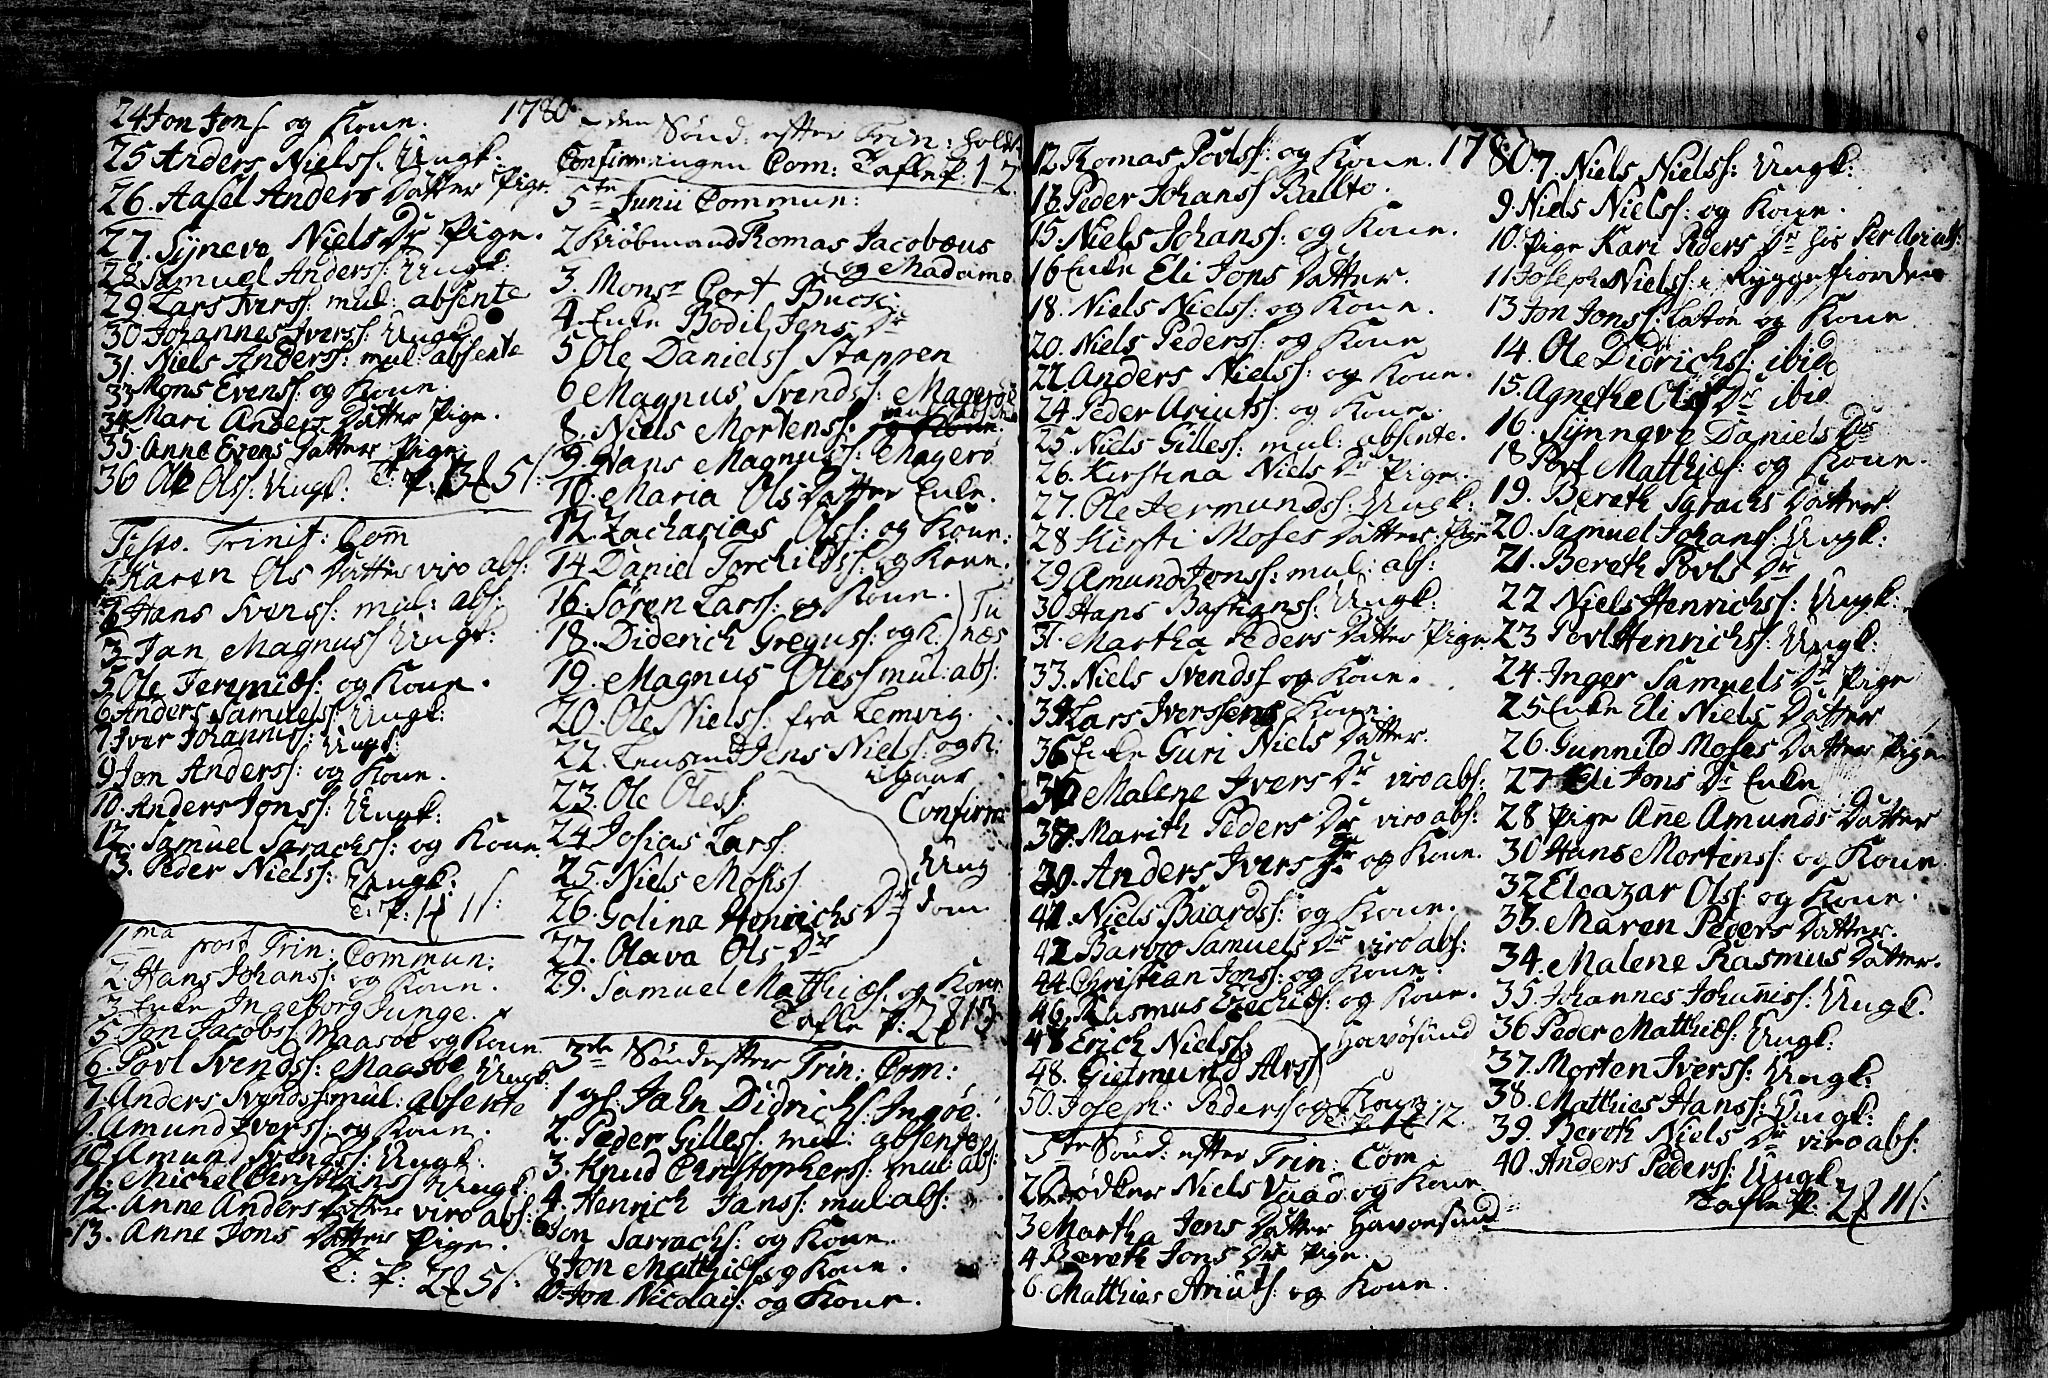 1780.
24 Jon Jons: og Kone.
25 Anders Nielss: Ungk:
26. Aasel Anders Datter Pige.
27. Syneva Niels Dr Pige.
28 Samuel Anderss: Ungk:
29. Lars Iverss: mul: absente
30 Johannes Iverss: Ungk:
31. Niels Anderss: mul: absente
33 Mons Evenss: og Kone.
34 Mari Anders Datter Pige.
35. Anne Evens Datter Pige.
36 Ole Olss: Ungk:
Festo. Trinit: Com
1. Karen Ols Datter viro abs:
2 Hans Svenss: mul: abs:
3 Jan Magnuss Ungk:
5 Ole Jeremiæs: og Kone.
6 Anders Samuelss: Ungk:
7 Iver Johanniss: Ungk:
9 Jon Anderss: og Kone.
10. Anders Jonss: Ungk:
12. Samuel Sarachss: og Kone.
13. Peder Nielss: Ungk:
T: P: 1 11 s:
1ma post Trin: Commun:
2 Hans Johanss: og Kone.
3 Enke Ingeborg Junge.
5 Jon Jacobs: Maasøe og Kone.
6. Povl Svendss: Maasøe Ungk:
7. Anders Svendss: mul: absente
9. Amund Iverss: og Kone.
10 Amund Svendss: Ungk:
11. Michel Christianss Ungk:
12. Anne Anders Datter viro abs:
13. Anne Jons Datter Pige.
T: P: 2 5 s:
den Sønd: efter Trin: holdt
Confirmationen Com: Tafle P: 1 2.
5te Junii Commun:
2 Kiøbmand Thomas Jacobæus
og Madame.
3. Monsr Cort Buck:
4. Enke Bodil Jens Dr
5 Ole Danielss Stappen
6 Magnus Svendss: Magerøe
8. Niels Mortenss: mul: absente
9. Hans Magnuss: Magerø
10. Maria Ols Datter Enke.
12. Zacharias Olss: og Kone.
14 Daniel Torchildss: og Kone.
16. Søren Larss: og Kone.
18. Diderich Greguss: og K:
Tunæs
19. Magnus Oless mul: abs:
20. Ole Nielss: fra Lemvig.
22. Lensmd Jens Nielss: og K:
i Gaar
23. Ole Oless.
Confirm
24 Josias Larss.
25. Niels Moses
Ung
26. Golina Henrichs Dr
dom
27. Olava Ols Dr
29. Samuel Matthiæs: og Kone
Tafle P: 2 13
3die Sønd efter Trin: Com:
1 gl: Jahn Didrichs: Ingøe.
2. Peder Gilless: mul: absente
3. Knud Christopherss: mul: abs:
4 Henrich Janss: mul abs:
6 Jon Sarrachs: og Kone.
8 Jon Matthiæs og Kone.
10 Jon Nicolais: og Kone.
1780
12. Thomas Povlss: og Kone.
13. Peder Johanss Ballto.
15. Niels Johanss: og Kone.
16 Enke Eli Jons Datter.
18. Niels Nielss: og Kone.
20. Niels Pederss: og Kone
22 Anders Nielss: og Kone.
24. Peder Ariuts: og Kone.
25. Niels Gilless: mul: absente.
26. Kirstina Niels Dr Pige.
27. Ole Jermundss: Ungk:
28 Kirsti Moses Datter: Pige
29 Amund Jonss: mul: abs:
30 Hans Bastianss: Ungk:
31. Martha Peders Datter Pige
33. Niels Svendss og Kone.
34 Lars Iverssens Kone.
36 Enke Guri Niels Datter.
Malene Ivers Dr viro abs:
38. Marith Peders Dr viro abs:
39. Anders Ivers Jr og Kone.
41. Niels Baardss: og Kone.
42 Barbro Samuels Dr viro abs:
44 Christian Jonss: og Kone.
46. Rasmus Ezechiæs: og Kone.
48 Erich Nielss.
Havøsund
48. Gietmund Alrss
50. Joseph: Pederss og Kone.
5te Sønd: efter Trin: Com:
2 Bødker Niels Vaad og Kone
3 Martha Jens Datter Havøesund
4 Bereth Jons Dr Pige.
6. Matthies Ariuts: og Kone.
7. Niels Nielss: Ungk:
9 Niels Nielss: og Kone.
10. Pige Kari Peders Dr hos Per Ariuts:
11 Joseph Nielss: i Ryggefiorden
13 Jon Jonss: Latøe og Kone
14. Ole Didrichs: ibid
15. Agnethe Ols Dr ibid
16. Synneve Daniels Dr
18 Povl Matthiæs: og Kone.
19. Bereth Sarachs Datter.
20. Samuel Johanss: Ungk:
21. Bereth Povls Dr
22 Niels Henrichss: Ungk:
23 Povl Henrichss: Ungk:
24 Inger Samuels Dr Pige
25 Enke Eli Niels Datter
26. Gunnild Moses Datter Pige
27 Eli Jons Dr Enke
28 Pige Ane Amunds Datter
30 Hans Mortenss: og Kone.
32 Eleazar Olss: og Kone.
33. Maren Peders Datter.
34. Malene Rasmus Datter.
35. Johannes Johaniss: Ungk:
36 Peder Matthiæs: Ungk:
37. Morten Iverss: Ungk:
38. Matthies Hanss: Ungk:
39. Bereth Niels Dr viro abs:
40. Anders Pederss: Ungk:
Tafle P: 2 11 s: